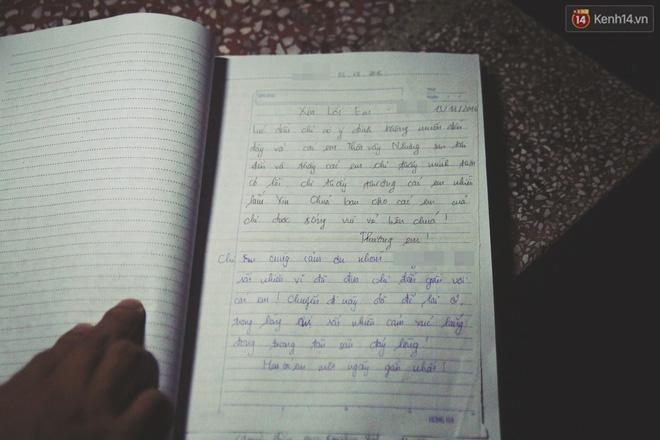 14 Kenh14.vn
Xin Lỗi Em 13/11/2016
Lúc đầu chị có ý định không muốn đến
đây và các em Thật vậy Nhưng sau khi
đến và thấy các em chị thấy mình thật
có lỗi chị thấy thương các em nhiều
lắm Xin Chúa ban cho các em của
chị được sống vui vẻ bên chúa!
Thương em!
Chị cũng cảm ơn nhóm
rất nhiều vì đã đưa chị đến gần với
các em! Chuyến đi này đã để lại
trong lòng chị rất nhiều cảm xúc lắng
đọng trong tận sâu đáy lòng!
Hẹn các em một ngày gần nhất!
HONG HA